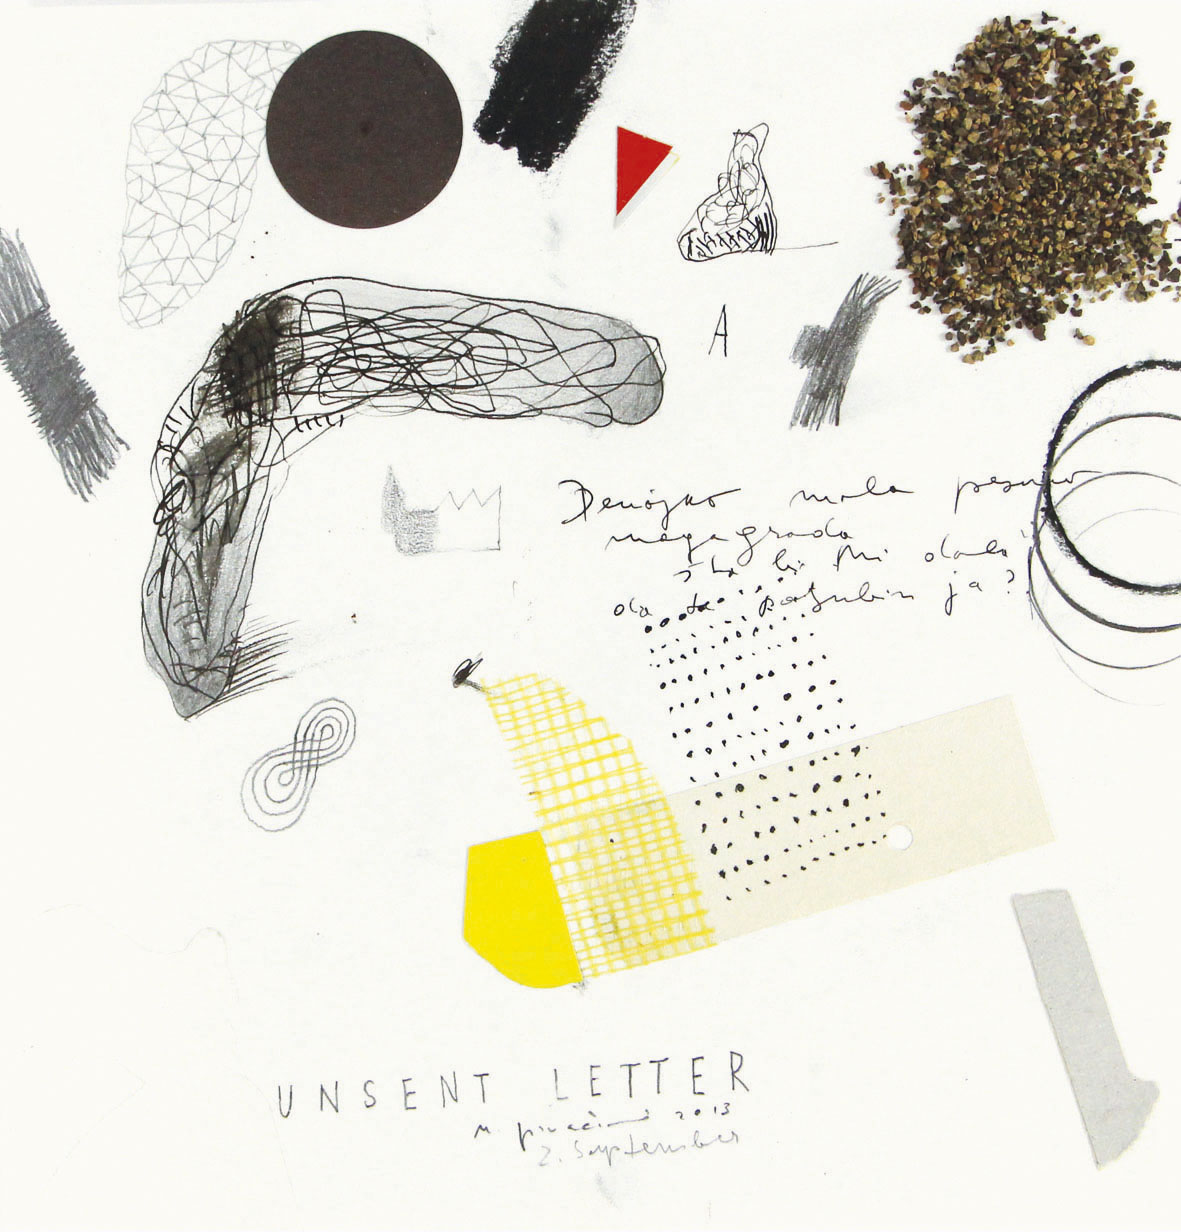 A
Devojko mala pesmo
moga grada
šta bi mi dala
da te poljubim ja?
UNSENT LETTER
M. 2013
2. September